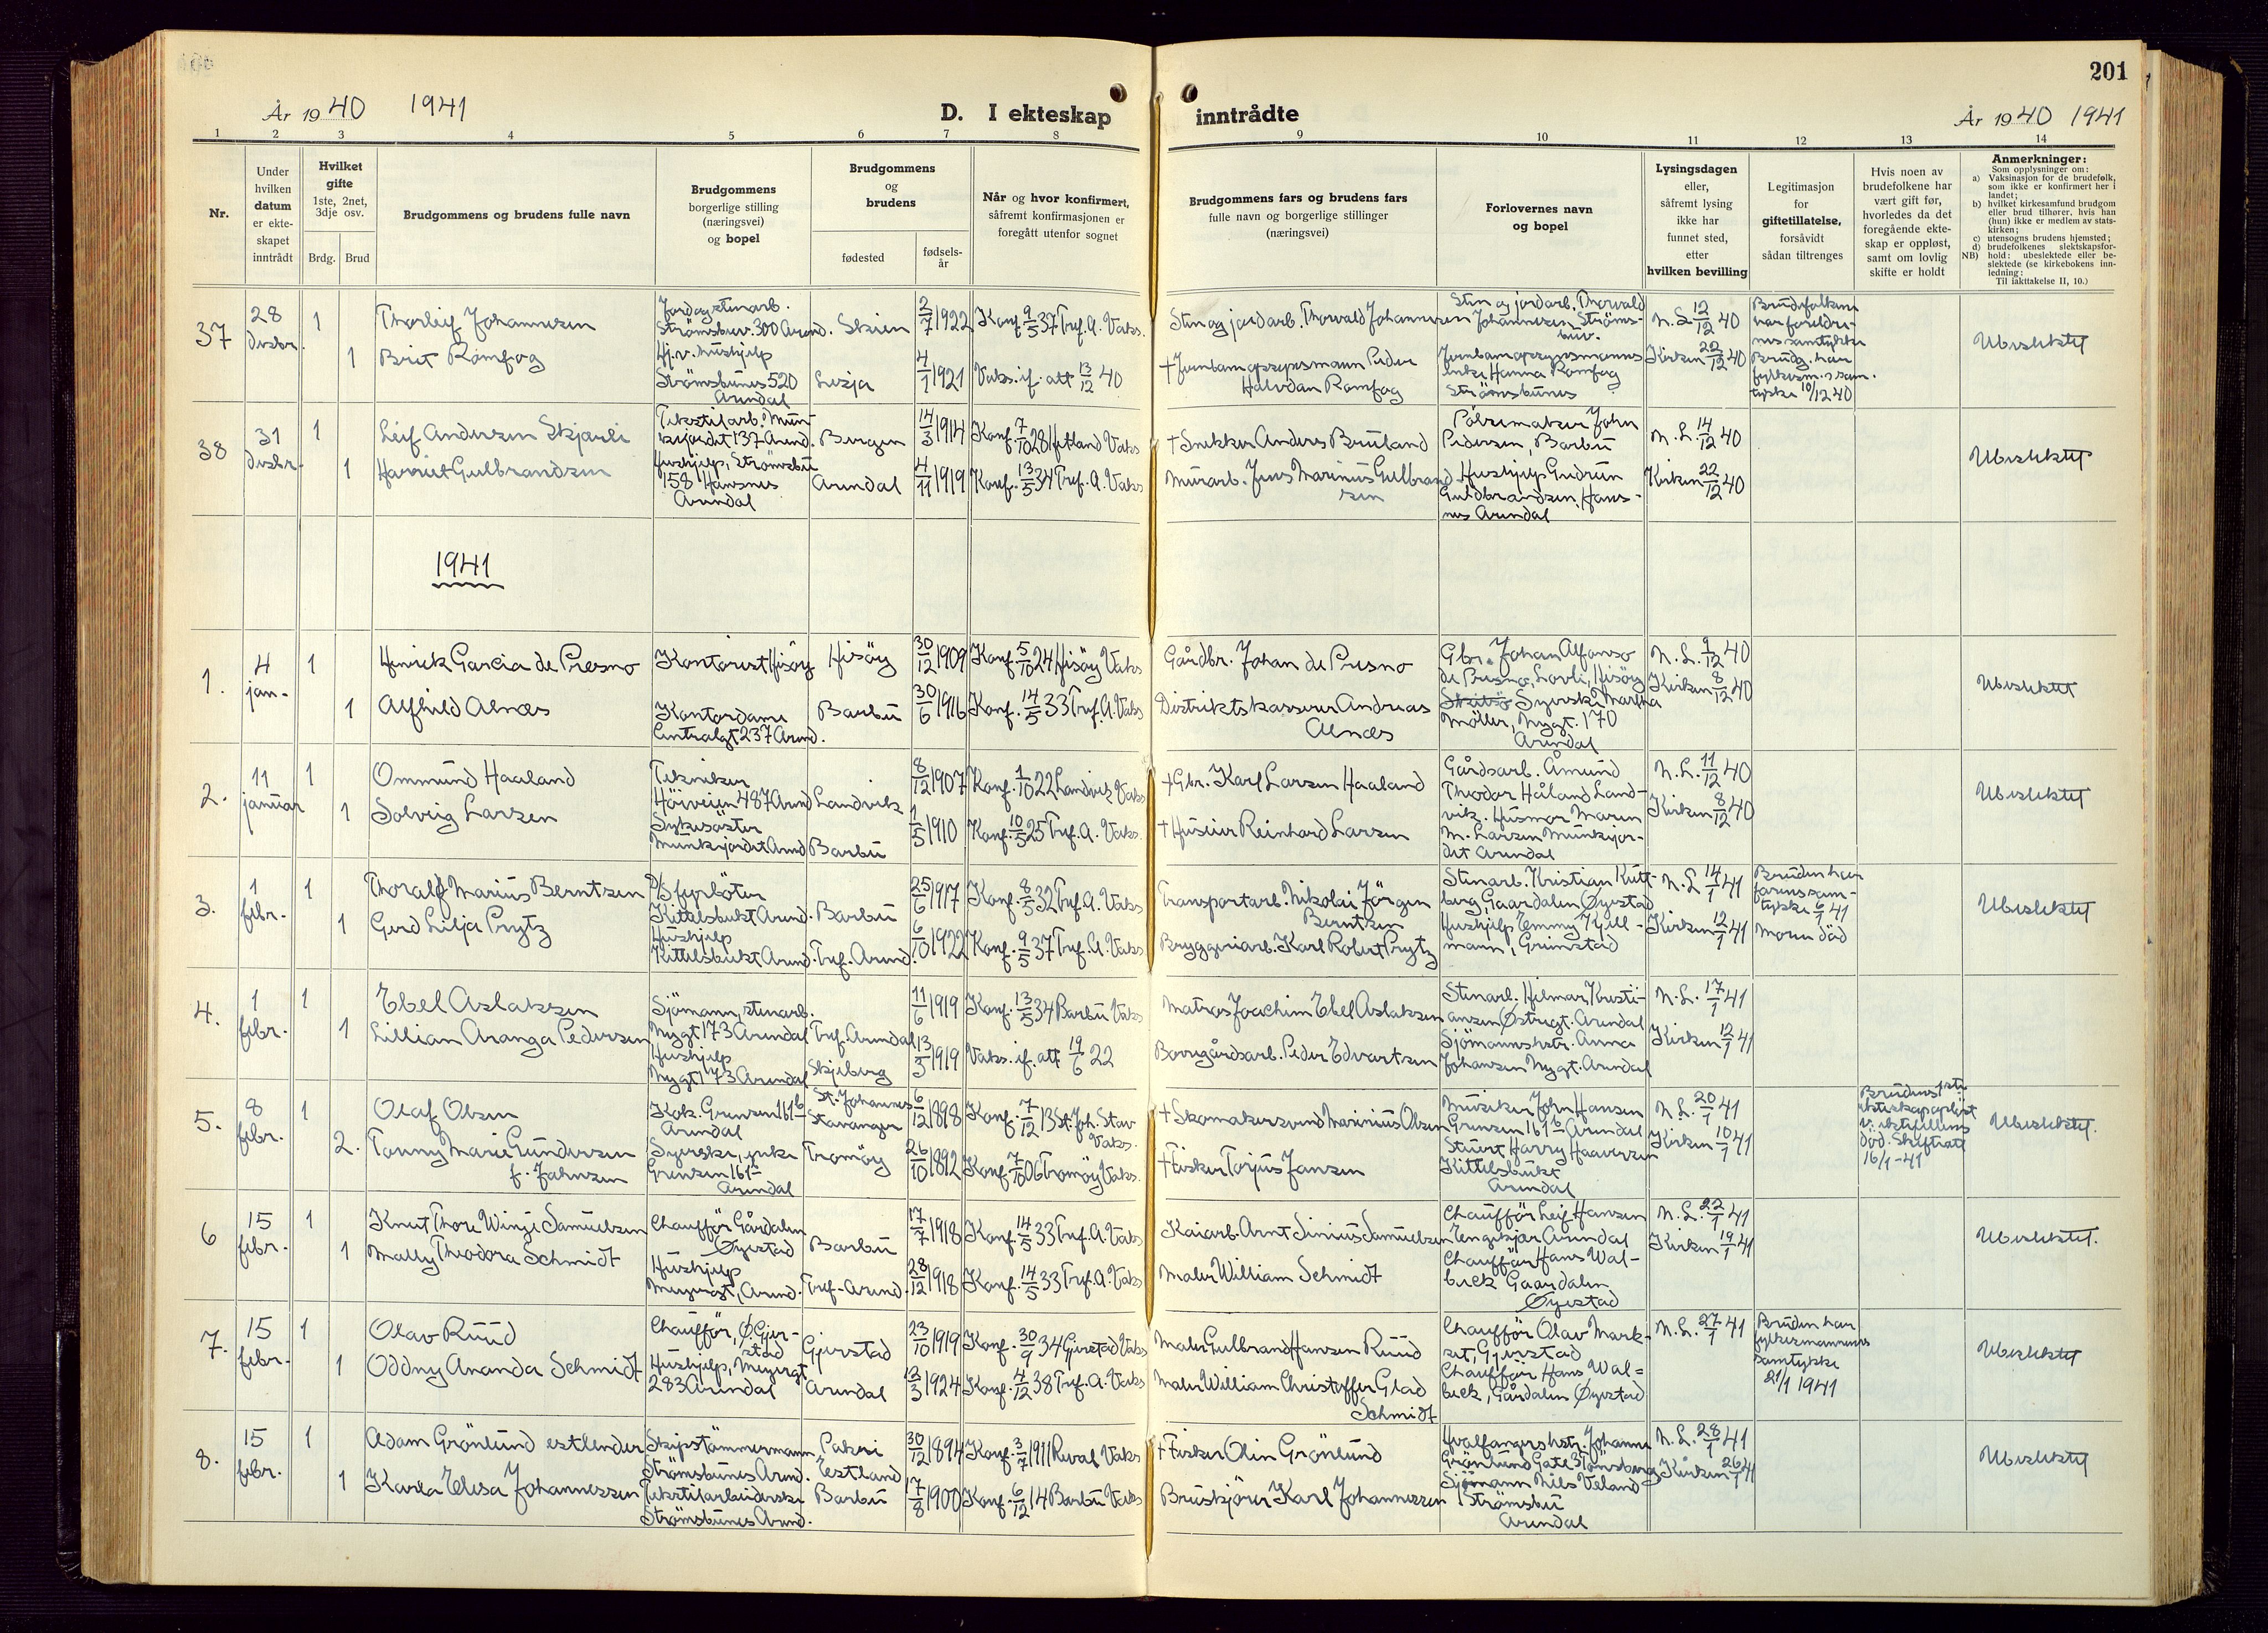 201
År 1940 1941
D. I ekteskap inntrådte
År 1940 1941
1 2 3 4 5 6 7 8 9 10 11 12 13 14
Nr.
Under
hvilken
datum
er ekte-
skapet
inntrådt
Hvilket
gifte
1ste, 2net,
3dje osv.
Brdg. Brud
Brudgommens og brudens fulle navn
Brudgommens
borgerlige stilling
(næringsvei)
og bopel
Brudgommens
og
brudens
fødested
fødsels-
år
Når og hvor konfirmert,
såfremt konfirmasjonen er
foregått utenfor sognet
Brudgommens fars og brudens fars
fulle navn og borgerlige stillinger
(næringsvei)
Forlovernes navn
og bopel
Lysingsdagen
eller,
såfremt lysing
ikke har
funnet sted,
etter
hvilken bevilling
Legitimasjon
for
giftetillatelse,
forsåvidt
sådan tiltrenges
Hvis noen av
brudefolkene har
vært gift før,
hvorledes da det
foregående ekte-
skap er oppløst,
samt om lovlig
skifte er holdt
Anmerkninger:
Som opplysninger om:
a) Vaksinasjon for de brudefolk,
som ikke er konfirmert her i
landet;
b) hvilket kirkesamfund brudgom
eller brud tilhører, hvis han
(hun) ikke er medlem av stats-
kirken;
c) utensogns brudens hjemsted;
d) brudefolkenes slektskapsfor-
NB) hold: ubeslektede eller be-
slektede (se kirkebokens inn-
ledning:
Til iakttakelse II, 10.)
37
28
desbr.
1
1
Thorleif Johannesen
Brit Romfog
Jordogstenarb.
Strömsbuv. 300 Arend.
Hj.v. hushjelp
Strömsbunes 520
Arendal
Skien
Lesja
2/7 1922
4/1 1921
Konf. 9/5 37 Tref. A. Vaks.
Vaks. if. att 13/12 40
Sten og jordarb. Thorvald Johannesen
+ Jernbaneoppsynsmann Peder
Halvdan Romfog
Sten og jordarb. Thorvald
Johannesen, Ströms-
buv.
Jernbaneoppsynsmannes
enke Hanna Romfog
Strömsbunes
N. L. 12/12 40
Kirken 22/12 40
Brudefolkene
har foreldre-
nes samtykke
Brudg. har
fylkesm.s sam-
tykke 10/12 40
Ubeslektet
38
31
desbr.
1
1
Leif Andersen Skjæeli
Harriet Gulbrandsen
Tekstilarb. Mun-
kejordet 137 Arend.
Hushjelp, Strömsbu
158 Hansnes
Arendal
Bergen
Arendal
14/3 1914
4/11 1919
Konf. 7/10 28 Hetland Vaks
Konf. 13/5 34 Tref. A. Vaks
+ Snekker Anders Bruland
Murarb. Jens Marinus Gulbrand
sen
Pölsemaker John
Pedersen, Barbu
Hushjelp Gudrun
Guldbrandsen, Hans-
nes Arendal
N. L. 14/12 40
Kirken 22/12 40
Ubeslektet
1941
1.
4
jan-
1
1
Henrik Garcia de Presno
Alfhild Alnæs
Kontorist Hisöy
Kontordame
Centralgt 237 Arend.
Hisöy
Barbu
30/12 1909
30/6 1916
Konf. 5/10 24 Hisöy Vaks
Konf. 14/5 33 Tref. A. Vaks
Gårdbr. Johan de Presno
Distriktskasserer Andreas
Alnæs
Gbr. Johan Alfonso
de Presno, Lovli, Hisöy
Syerske Martha
Möller, Nygt. 170
Arendal
N. L. 9/12 40
Kirken 8/12 40
Ubeslektet
2.
11
januar
1
1
Ommund Haaland
Solveig Larsen
Tekniker
Höiveien 487 Arend
Sykesöster
Munkejordet Arend
Landvik
Barbu
8/12 1907
1/5 1910
Konf. 1/10 22 Landvik Vaks
Konf. 10/5 25 Tref. A. Vaks.
+ Gbr. Karl Larsen Haaland
+ Huseier Reinhard Larsen
Gårdsarb. Åmund
Theodor Håland Land-
vik. Husmor Maren
M. Larsen Munkejor-
det Arendal
N. L. 11/12 40
Kirken 8/12 40
Ubeslektet
3.
1
febr.
1
1
Thoralf Marius Berntsen
Gerd Lilja Prytz
D/S fyrböter
Kittelsbukt Arend.
Hushjelp
Kittelsbukt Arend.
Barbu
Tref. Arend.
25/6 1917
6/10 1922
Konf. 8/5 32 Tref. A. Vaks
Konf. 9/5 37 Tref. A. Vaks
Transportarb. Nikolai Jörgen
Berntsen
Bryggeriarb. Karl Robert Prytz
Stenarb. Kristian Rutt-
berg, Gaardalen Øyestad
Hushjelp Emmy Kjell-
mann, Grimstad
N. L. 14/1 41
Kirken 12/1 41
Bruden har
farens sam-
tykke 6/1 41
Moren död
Ubeslektet
4.
1
febr.
1
1
Ebel Aslaksen
Lillian Aranga Pedersen
Sjömann, stenarb.
Nygt 173 Arendal
Hushjelp
Nygt 173 Arendal
Tref. Arendal
Skjeberg
11/6 1919
13/5 1919
Konf. 13/5 34 Barbu Vaks
Vaks. if. att 19/6 22
Matros Joachim Ebel Aslaksen
Borregårdsarb. Peder Edvartsen
Stenarb. Hilmar Kristi-
ansen Østregt. Arendal
Sjömannshstr. Anna
Johansen Nygt. Arendal
N. L. 17/1 41
Kirken 12/1 41
5.
8
febr.
1
2.
Olaf Olsen
Tonny Marie Gundersen
f. Jahnsen
Kok. Grensen 161 b
Arendal
Syerske, enke
Grensen 161
Arendal
St. Johannes
Stavanger
Tromöy
6/12 1898
26/10 1892
Konf. 7/12 13 St. Joh. Stav
Vaks.
Konf. 7/10 06 Tromöy Vaks.
+ Skomakersvend Marinius Olsen
+ Fisker Torjus Jansen
Musiker John Hansen
Grensen 161 b Arendal
Stuert Harry Haaversen
Kittelsbukt
Arendal
N. L. 20/1 41
Kirken 10/1 41
Brudens 1ste
ekteskap oplöst
v. ektefellens
död. Skifteatt
16/1-41
Ubeslektet.
6
15
febr.
1
1
Knut Thore Winje Samuelsen
Mally Theodora Schmidt
Chaufför Gårdalen
Øyestad
Hushjelp
Meyergt, Arend.
Barbu
Tref-Arend.
17/7 1918
28/12 1918
Konf. 14/5 33 Tref. A. Vaks
Konf. 14/5 33 Tref. A. Vaks
Kaiarb. Arnt Sinius Samuelsen
Maler William Schmidt
Chaufför Leif Hansen
Engekjær Arendal
Chauffør Hans Wal-
beck Gaardalen
Øyestad
N. L. 22/1 41
Kirken 19/1 41
Ubeslektet.
7.
15
febr.
1
1
Olav Ruud
Oddny Ananda Schmidt
Chauffør, Ø. Gjer-
stad
Hushjelp, Meyergt
283 Arendal
Gjerstad
Arendal
23/10 1919
13/3 1924
Konf. 30/9 34 Gjerstad Vaks
Konf. 4/12 38 Tref. A. Vaks
Maler Gulbrand Hansen Ruud
Maler William Christoffer Glad
Schmidt
Chauffør Olav Mark-
set, Gjerstad
Chauffør Hans Wal=
beck, Gårdalen Øyestad
N. L. 27/1 41
Bruden har
fylkesmannens
samtykke
21/1 1941
Ubeslektet
8.
15
febr.
1
1
Adam Grönlund estlender
Karla Elisa Johannessen
Skipstömmermann
Strömsbunes Arend.
Tekstilarbeiderske
Strömsbunes Arend.
Pakri
Estland
Barbu
30/12 1894
17/8 1900
Konf. 3/7 1911 Reval Vaks
Konf. 6/12 14 Barbu Vaks
+ Fisker Olin Grönlund
Bruskjörer Karl Johannessen
Hvalfangershstr. Johanne
Grönlund Gate 3 Tönsberg
Sjömann Nils Veland
Strömsbu
Arendal
N. L. 28/1 41
Kirken 26/1 41
Ubeslektet